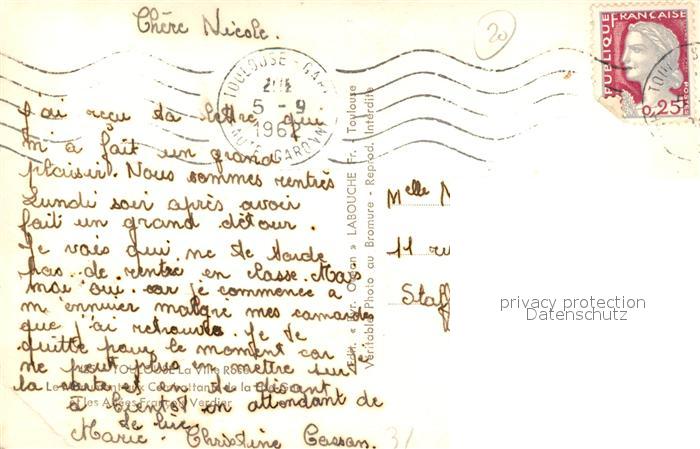 Chère Nicole.
20
RÉPUBLIQUE FRANÇAISE
0,25
TOULOUSE - GARE
5 - 9
196
HAUTE GARONNE
j'ai reçu ta lettre qui
m'a fait un grand
plaisir. Nous sommes rentrés
Lundi soir après avoir
fait un grand détour.
Je vais qui ne te tarde
pas de rentré en classe. Mais
moi oui car je commence a
m'ennuier malgré mes camarades
que j'ai retrouvés. Je te
quitte pour le moment car
ne peut plus mettre sur
la carte et en te disant
à bientôt en attendant de
te lire.
Marie-Christine Cassan.
TOULOUSE La Ville Rose
et les Allées François Verdier
Edit. « LABOUCHE Fr. Toulouse
Véritable Photo au Bromure - Reprod. Interdite
Melle N
11 ru
Staff
privacy protection
Datenschutz